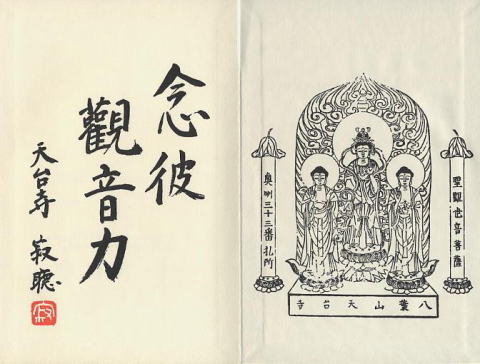 念彼
觀音力
天台寺 寂聴
寂
聖觀世音菩薩
奥州三十三番札所
八葉山天台寺